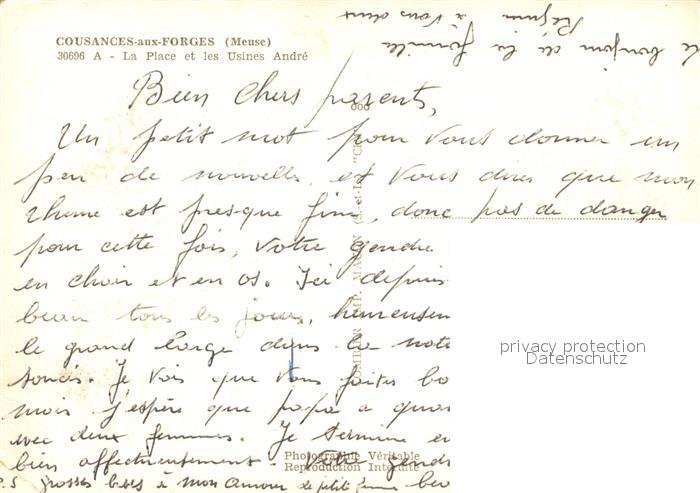 COUSANCES-aux-FORGES (Meuse)
30696 A - La Place et les Usines André
le bonjour de la famille
à vous deux
Bien chers parents,
Un petit mot pour vous donner un
peu de nouvelle, et vous dires que mon
rhume est presque fini, donc pas de danger
pour cette fois, votre gendre
en chair et en os. Ici depuis
beau tous les jours, heureusem
le grand large dans la note
soucis. Je vois que vous faites bo
mais j'espère que papa a quas
avec deux femmes. Je termine en
bien affectueusement. Votre gendr
P.S grosses bises à mon amour de petite femme
Photographie Véritable
Reproduction Interdite
privacy protection
Datenschutz